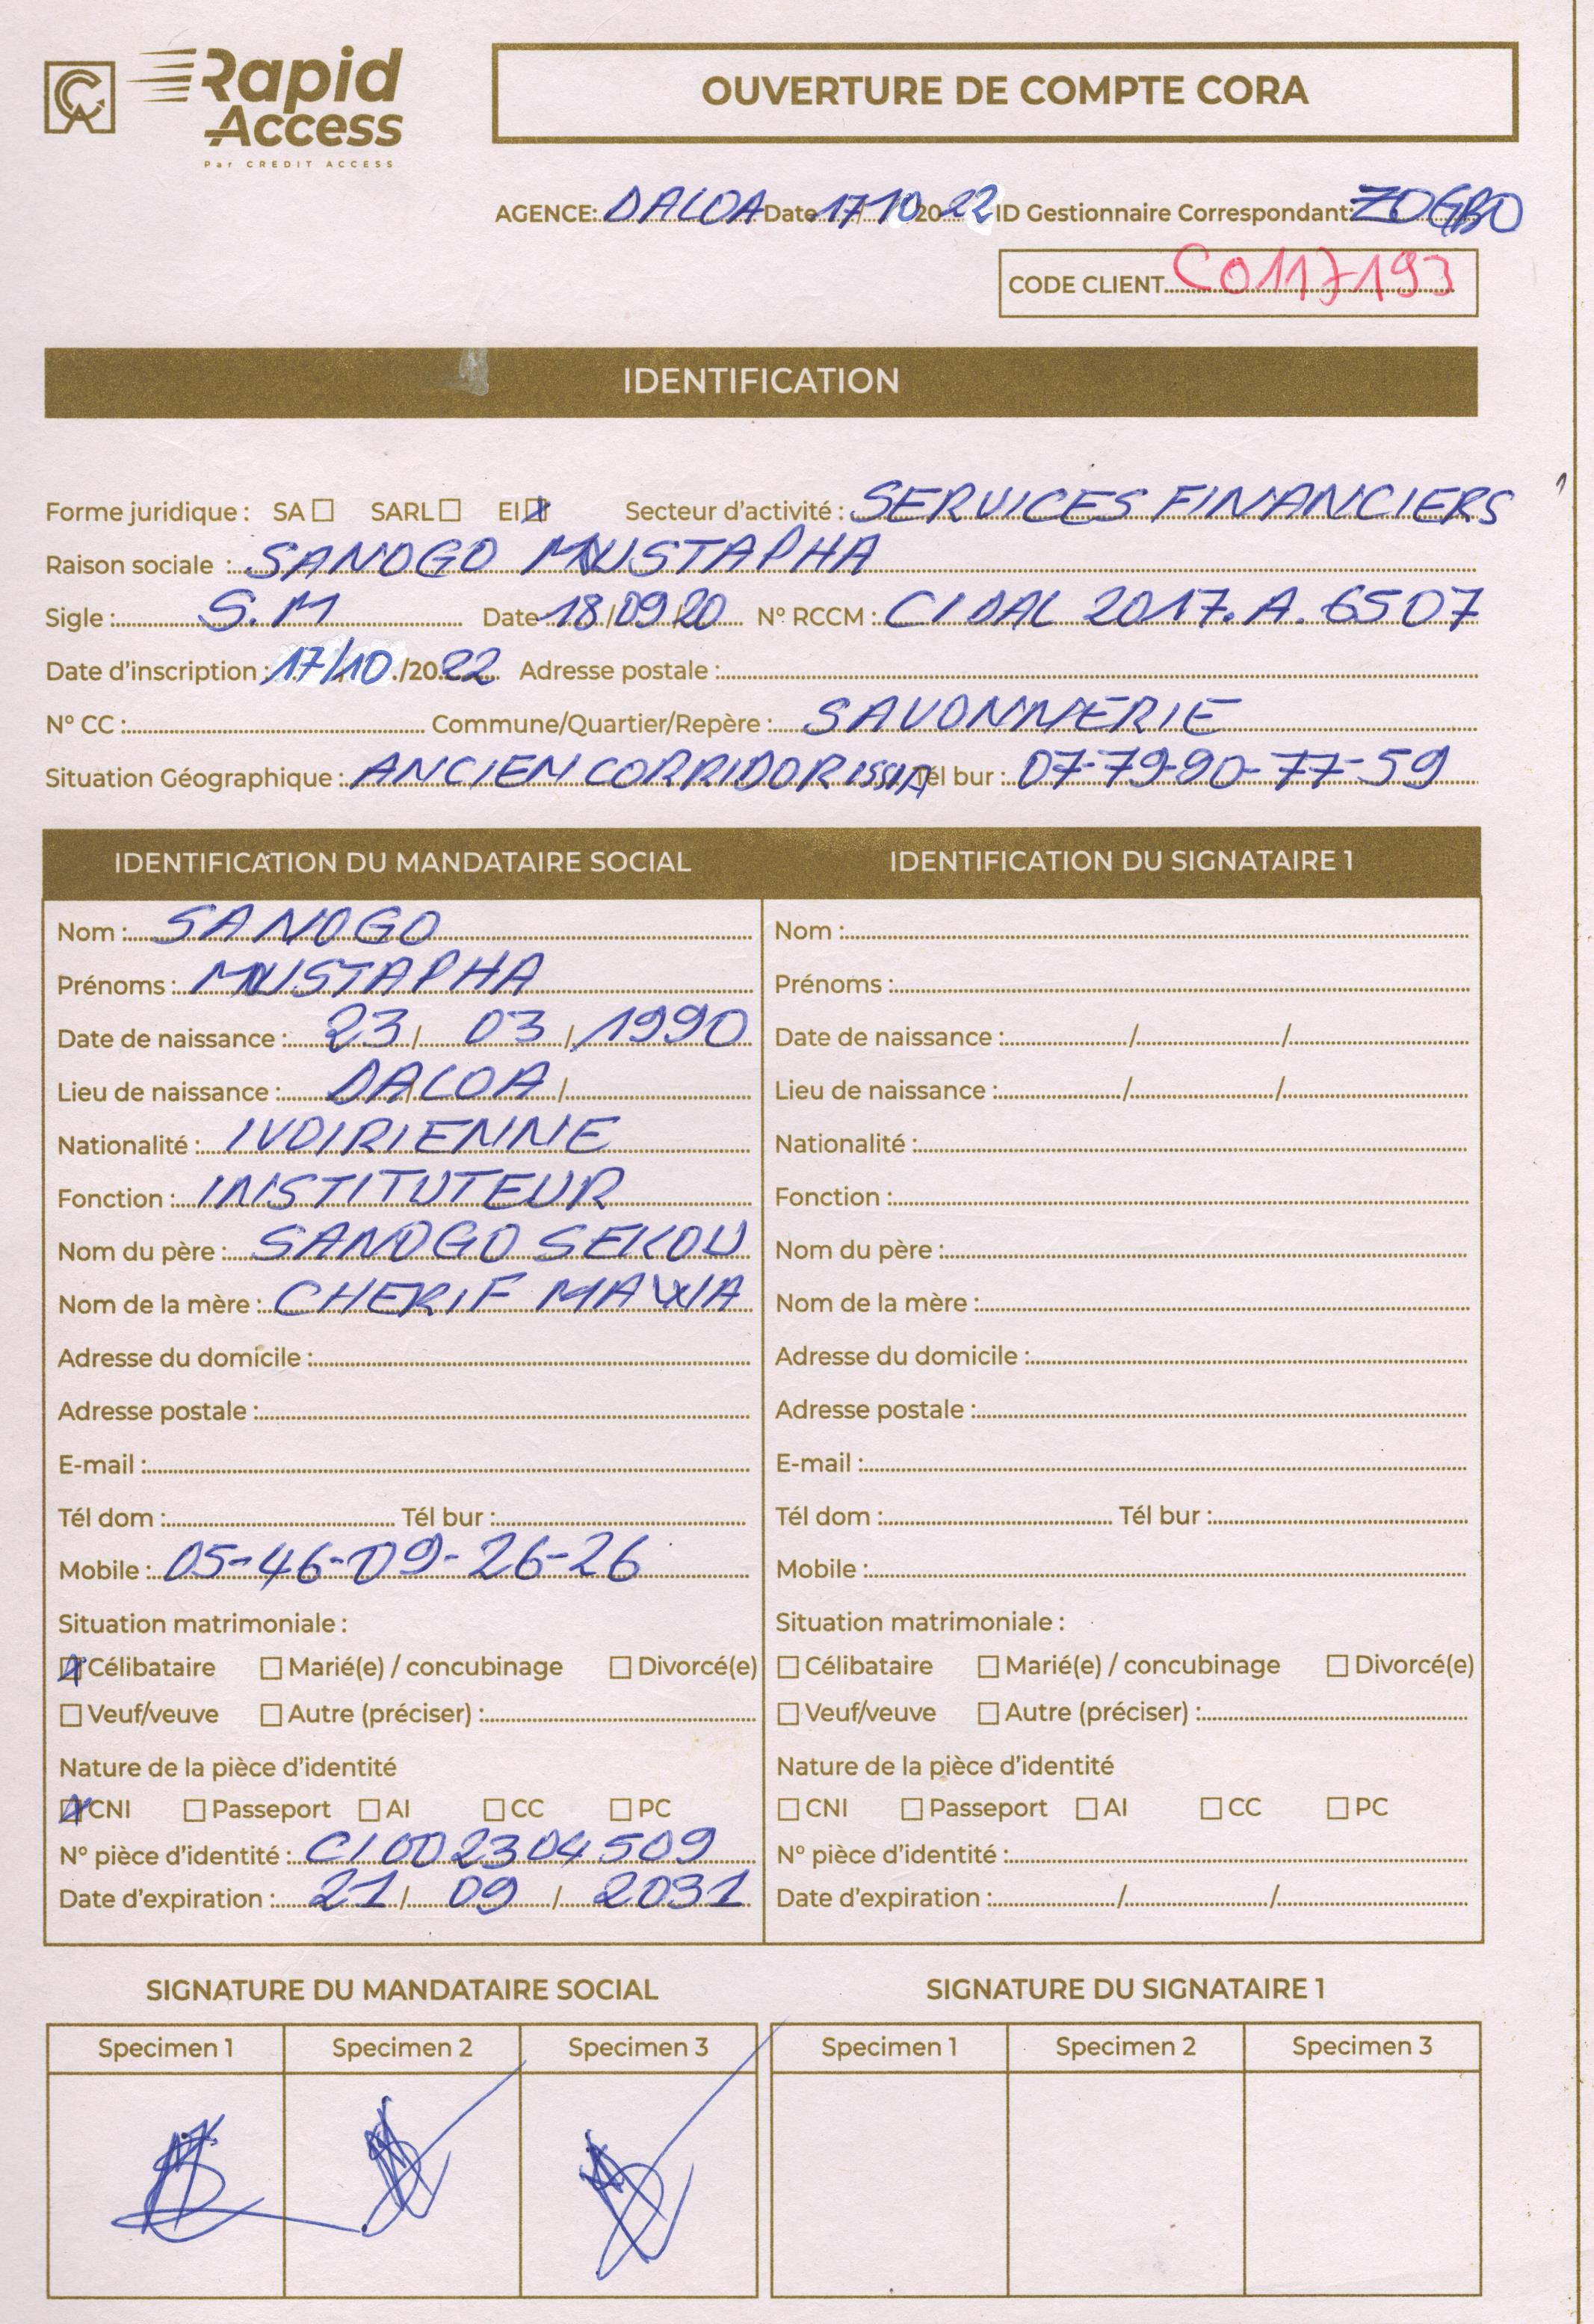 CA Rapid Access
Par CREDIT ACCESS
OUVERTURE DE COMPTE CORA
AGENCE: DALOA Date 17/10/2022 ID Gestionnaire Correspondant: ZOGBO
CODE CLIENT C0117193
IDENTIFICATION
Forme juridique : SA ☐ SARL ☐ EI ☒ Secteur d'activité : SERVICES FINANCIERS
Raison sociale : SANOGO MUSTAPHA
Sigle : S.M Date 18/09/20 N° RCCM : CI DAL 2017. A. 6507
Date d'inscription : 17/10/2022 Adresse postale :
N° CC : Commune/Quartier/Repère : SAVONNERIE
Situation Géographique : ANCIEN CORRIDOR ISSIA Tél bur : 07-79-90-77-59
IDENTIFICATION DU MANDATAIRE SOCIAL
Nom : SANOGO
Prénoms : MUSTAPHA
Date de naissance : 23 / 03 / 1990
Lieu de naissance : DALOA /
Nationalité : IVOIRIENNE
Fonction : INSTITUTEUR
Nom du père : SANOGO SEKOU
Nom de la mère : CHERIF
Adresse du domicile :
Adresse postale :
E-mail :
Tél dom : Tél bur :
Mobile : 05-46-09-26-26
Situation matrimoniale :
☒ Célibataire ☐ Marié(e) / concubinage ☐ Divorcé(e)
☐ Veuf/veuve ☐ Autre (préciser) :
Nature de la pièce d'identité
☒ CNI ☐ Passeport ☐ AI ☐ CC ☐ PC
N° pièce d'identité : CI002304509
Date d'expiration : 21 / 09 / 2031
IDENTIFICATION DU SIGNATAIRE 1
Nom :
Prénoms :
Date de naissance : / /
Lieu de naissance : / /
Nationalité :
Fonction :
Nom du père :
Nom de la mère :
Adresse du domicile :
Adresse postale :
E-mail :
Tél dom : Tél bur :
Mobile :
Situation matrimoniale :
☐ Célibataire ☐ Marié(e) / concubinage ☐ Divorcé(e)
☐ Veuf/veuve ☐ Autre (préciser) :
Nature de la pièce d'identité
☐ CNI ☐ Passeport ☐ AI ☐ CC ☐ PC
N° pièce d'identité :
Date d'expiration : / /
SIGNATURE DU MANDATAIRE SOCIAL
Specimen 1 Specimen 2 Specimen 3
SIGNATURE DU SIGNATAIRE 1
Specimen 1 Specimen 2 Specimen 3